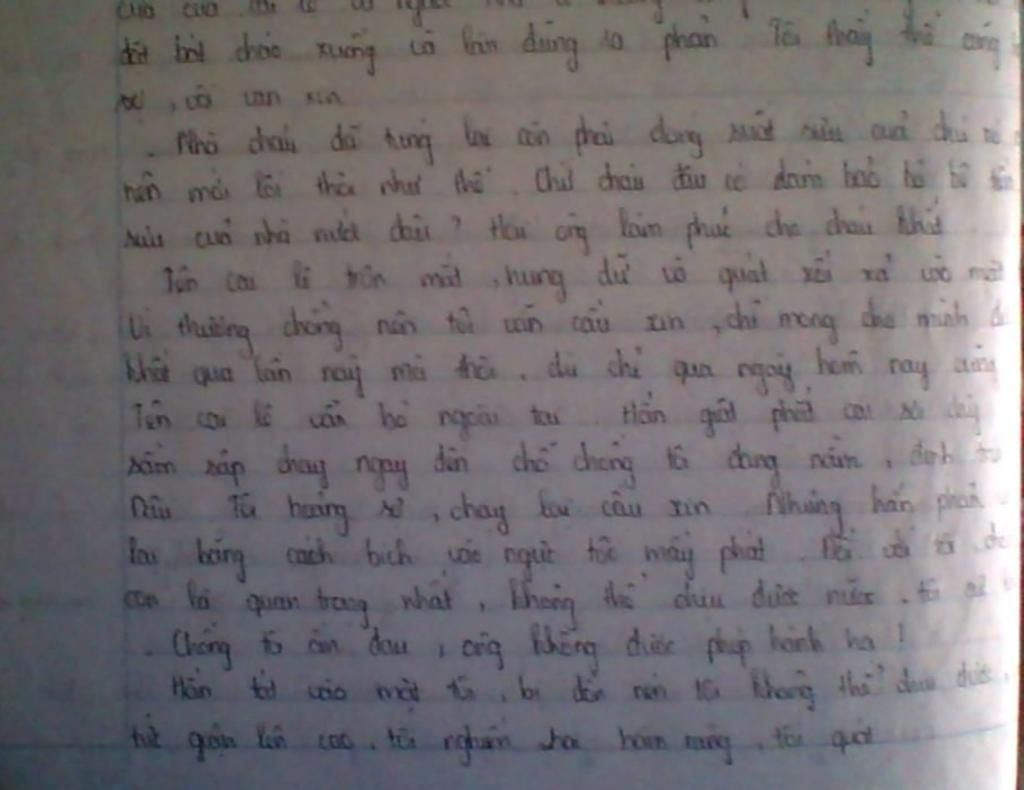 đặt bát cháo xuống và lăn đùng ra phản. Tôi thấy thế cũng
sợ, vội van xin
. Nhà cháu đã túng lại còn phải đóng suất sưu của chú nó
nên mới lôi thôi như thế. Chứ cháu đâu có dám bỏ bễ tiền
sưu của nhà nước đâu? Hai ông làm phúc cho cháu khất
Tên cai lệ trợn mắt, hung dữ và quát xối xả vào mặt
Vì thương chồng nên tôi vẫn cầu xin, chỉ mong cho mình
khất qua lần này mà thôi, dù chỉ qua ngày hôm nay cũng
Tên cai lệ vẫn bỏ ngoài tai. Hắn giật phắt cái
sầm sập chạy ngay đến chỗ chồng tôi đang nằm, định
Dậu Tôi hoảng sợ, chạy lại cầu xin Nhưng hắn phản
lại bằng cách bịch vào ngực tôi mấy phát. Đối với tôi
con là quan trọng nhất, không thể chịu được nữa. tôi
. Chồng tôi ốm đau, ông không được phép hành hạ!
Hắn tát vào mặt tôi, bị dồn nén tôi không thể chịu được,
tức giận lên cao, tôi nghiến hai hàm răng, tôi quát